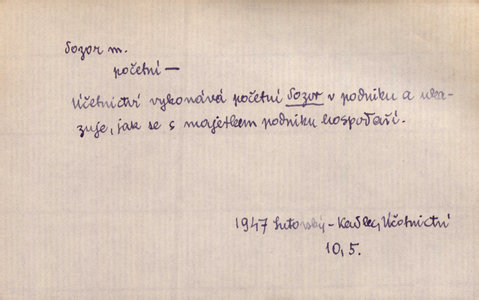 dozor m.
početní —
Účetnictví vykonává početní dozor v podniku a uka-
zuje, jak se s majetkem podniku hospodaří.
1947 - Kadlec, Účetnictví
10,5.